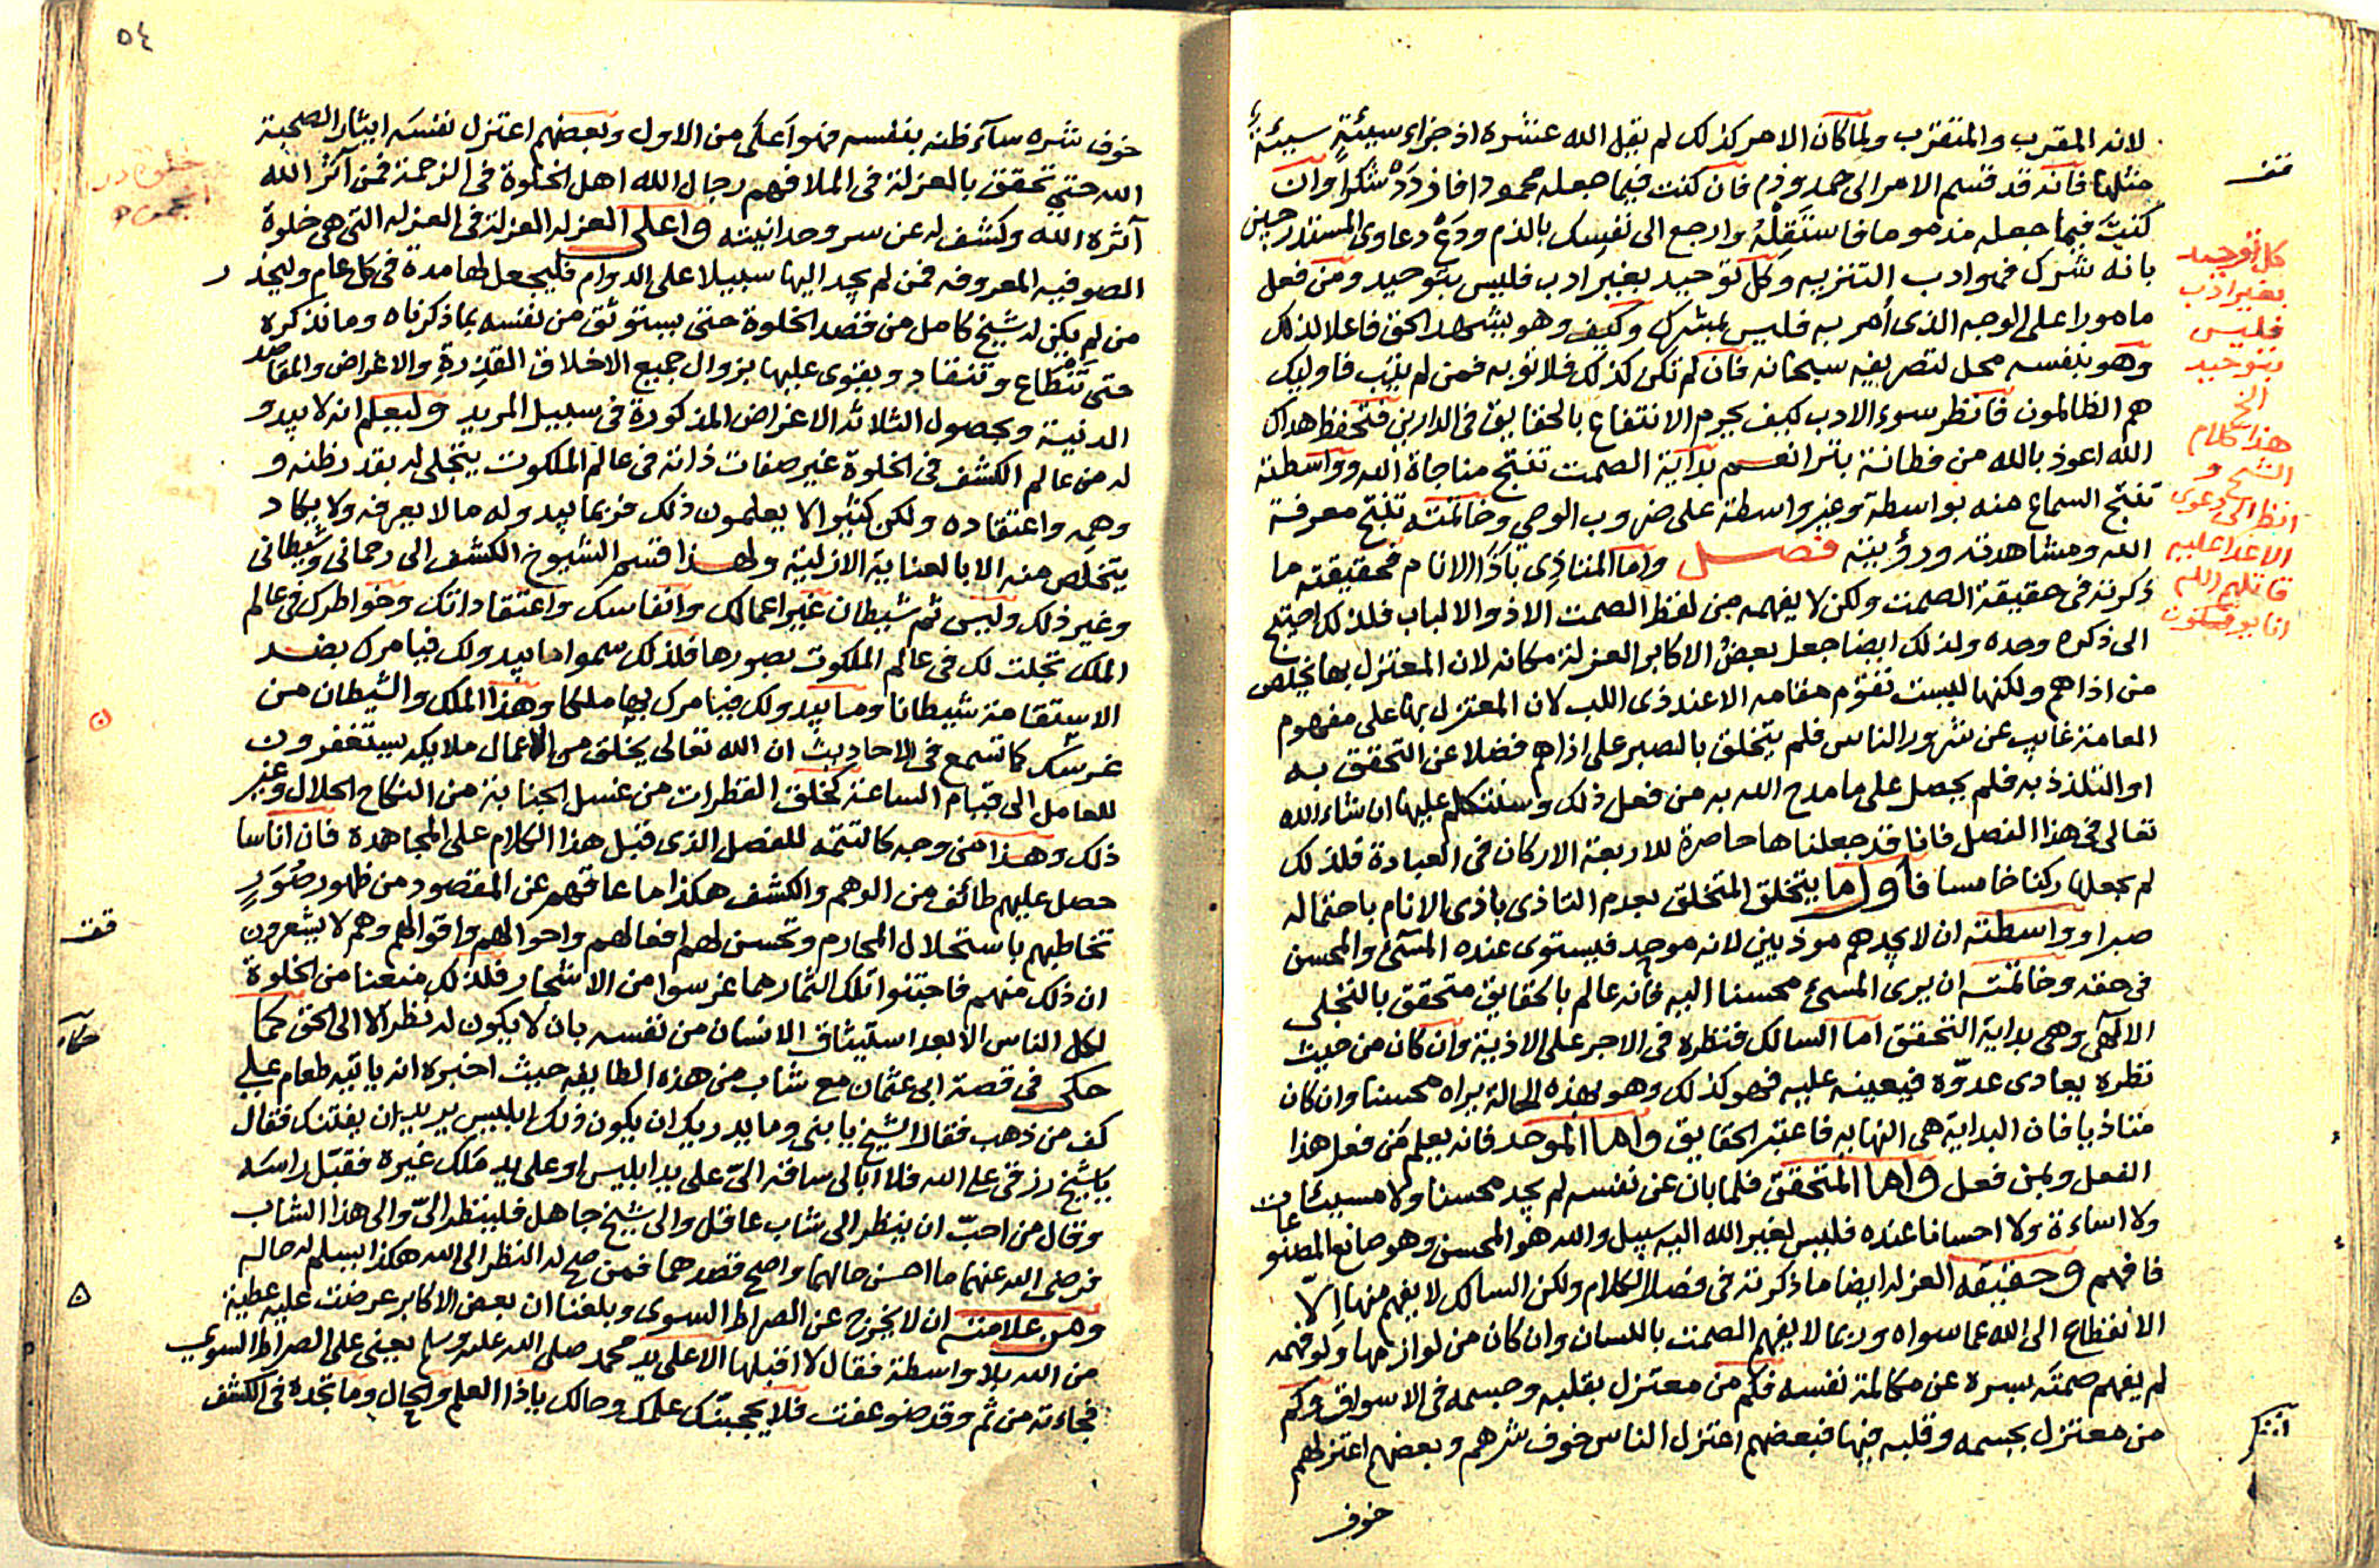 لانه المقرب والمتقرب ولما كان الامر كذلك لم يقل الله عنشره اذ جزاء سيئة سيئة
مثلها فانه قد قسم الامر الى حمد وذم فان كنت فيما جعله محمودا فازدَدْه شكرا وان
كنت فيما جعله مذموما فاستَقِلْهُ وارجع الى نفسك بالذم ودَعْ دعاوى المستدرجين
بانه شرك فهو ادب التنزيه وكل توحيد بغير ادب فليس بتوحيد ومن فعل
ما مورا على الوجه الذى أُمر به فليس بمشرك وكيف وهو يشهد الحق فاعلا لذلك
وهو بنفسه محل لتصريفه سبحانه فان لم تكن كذلك فلا توبه فمن لم يتب فاوليك
هم الظالمون فانظر سوء الادب كيف يحرم الانتفاع بالحقايق فى الدارين فتحفظ هداك
الله اعوذ بالله من فطانة بترا نعم بداية الصمت تنتج مناجاة الله وواسطته
تنتج السماع منه بواسطة وغير واسطة على ضروب الوحي وخاتمته تنتج معرفة
الله ومشاهدته ورؤيته فصل واما المتاذى باذا الانام فحقيقته ما
ذكرته فى حقيقة الصمت ولكن لا يفهمه من لفظ الصمت الا ذو الالباب فلذلك احتيج
الى ذكره وحده ولذلك ايضا جعل بعض الاكابر العزلة مكانه لان المعتزل بها يخلص
من اذاهم ولكنها ليست تقوم مقامه الا عند ذى اللب لان المعتزل بها على مفهوم
العامة غايب عن شرور الناس فلم يتخلق بالصبر على اذاهم فضلا عن التحقق به
او التلذذ به فلم يحصل على ما مدح الله به من فعل ذلك وسنتكلم عليها ان شاء الله
تعالى فى هذا الفصل فانا قد جعلناها حاصرة للاربعة الاركان فى العبادة فلذلك
لم نجعلها ركنا خامسا فاول ما يتخلق المتخلق بعدم التاذى باذى الانام باحتماله
صبرا وواسطته ان لا يجدهم موذيين لانه موحد فيستوى عنده المسئ والمحسن
فى حقه وخاتمته ان يرى المسئ محسنا اليه فانه عالم بالحقايق متحقق بالتخلى
الالهى وهى بداية التحقق اما السالك فنظره فى الاجر على الاذية وان كان من حيث
نظره يعادى عدوّه فيعينه عليه فهو كذلك وهو بهذه الحالة يراه محسنا وان كان
متاذيا فان البداية هى النهايه فاعتبر الحقايق واما الموحد فانه يعلم مَن فعل هذا
الفعل وبمن فعل واما المتحقق فلما بان عن نفسه لم يجد محسنا ولا مسيئا
ولا اساءة ولا احسانا عنده فليس لغير الله اليه سبيل والله هو المحسن وهو صانع المصنوعات
فافهم وحقيقه العزله ايضا ما ذكرته فى فصل الكلام ولكن السالك لا يفهم منها الّا
الانقطاع الى الله عما سواه وربما لا يفهم الصمت باللسان وان كان من لوازمها ولو فهمه
لم يفهم صمته بسره عن مكالمة نفسه فكم من معتزل بقلبه وجسمه فى الاسواق وكم
من معتزل بجسمه وقلبه فيها فبعضهم اعتزل الناس خوف شرهم وبعضهم اعتزلهم
خوف
قف
كل توحيد
بغير ادب
فليس
بتوحيد
الخ
هذا كلام
الشيخ و
انظر الى دعوى
الاعدا عليه
قاتلهم الله
انا يوفكون
٥٤
خوف شره سآء ظنه بنفسه فهو اعلى من الاول وبعضهم اعتزل نفسه ايثار الصحبة
الله حتى تحقق بالعزلة فى الملا فهم رجال الله اهل الخلوة فى الزحمة فمن آثر الله
آثره الله وكشف له عن سر وحدانيته واعلى العزله العزلة فى العزله التى هى خلوة
الصوفيه المعروفه فمن لم يجد اليها سبيلا على الدوام فليجعل لها مدة فى كل عام وليحذر
من لم يكن له شيخ كامل من قصد الخلوة حتى يستوثق من نفسه بما ذكرناه وما نذكره
حتى تنطاع وتنقاد ويقوى عليها بزوال جميع الاخلاق القذرة والاغراض والمقاصد
الدنية وبحصول الثلاثة الاغراض المذكورة فى سبيل المريد وليعلم انه لا يبدو
له من عالم الكشف فى الخلوة غير صفات ذاته فى عالم الملكوت يتجلى له بقدر ظنه و
وهمه واعتقاده ولكن كثيرا لا يعلمون ذلك فربما يبدو له ما لا يعرفه ولا يكاد
يتخلص منه الا بالعناية الازلية ولهذا قسم الشيوخ الكشف الى رحمانى وشيطانى
وغير ذلك وليس ثم شيطان غير اعمالك وانفاسك واعتقاداتك وخواطرك فى عالم
الملك تجلت لك فى عالم الملكوت بصورها فلذلك سموا ما يبدو لك فيامرك بضد
الاستقامة شيطانا وما يبدو لك فيامرك بها ملكا وهذا الملك والشيطان من
غرسك كما تسمع فى الاحاديث ان الله تعالى يخلق من الاعمال ملايكه يستغفرون
للعامل الى قيام الساعة كخلق القطرات من غسل الجنابة من النكاح الحلال وغير
ذلك وهذا من وجه كالتتمه للفصل الذى قبل هذا الكلام على المجاهدة فان اناسا
حصل عليهم طائف من الوهم والكشف هكذا ما عاقهم عن المقصود من ظهور صُوَرٍ
تخاطبهم باستحلال المحارم وتحسن لهم افعالهم واحوالهم واقوالهم وهم لا يشعرون
ان ذلك منهم فاجتنوا تلك الثمار مما غرسوا من الاشجار فلذلك منعنا من الخلوة
لكل الناس الا بعد استيثاق الانسان من نفسه بان لا يكون له نظر الا الى الحق كما
حكى فى قصة ابى عثمان مع شاب من هذه الطايفه حيث اخبره انه ياتيه طعام على
كف من ذهب فقال الشيخ يا بنى وما يدريك ان يكون ذلك ابليس يريد ان يفتنك فقال
يا شيخ رزقى على الله فلا ابالى ساقه الىّ على يد ابليس او على يد ملك غيره فقبّل راسه
وقال من احبّ ان ينظر الى شاب عاقل والى شيخ جاهل فلينظر الىّ والى هذا الشاب
فرضى الله عنهما ما احسن حالهما واصح قصدهما فمن صح له النظر الى الله هكذا يسلم له حاله
ومن علامته ان لا يخرج عن الصراط السوى وبلغنا ان بعض الاكابر عرضت عليه عطية
من الله بلا واسطة فقال لا اقبلها الا على يد محمد صلى الله عليه وسلم يعنى على الصراط السوي
فجاءته من ثم وقد ضوعفت فلا يحجبنّك علمك وحالك ياذا العلم والحال وما تجده فى الكشف
قف